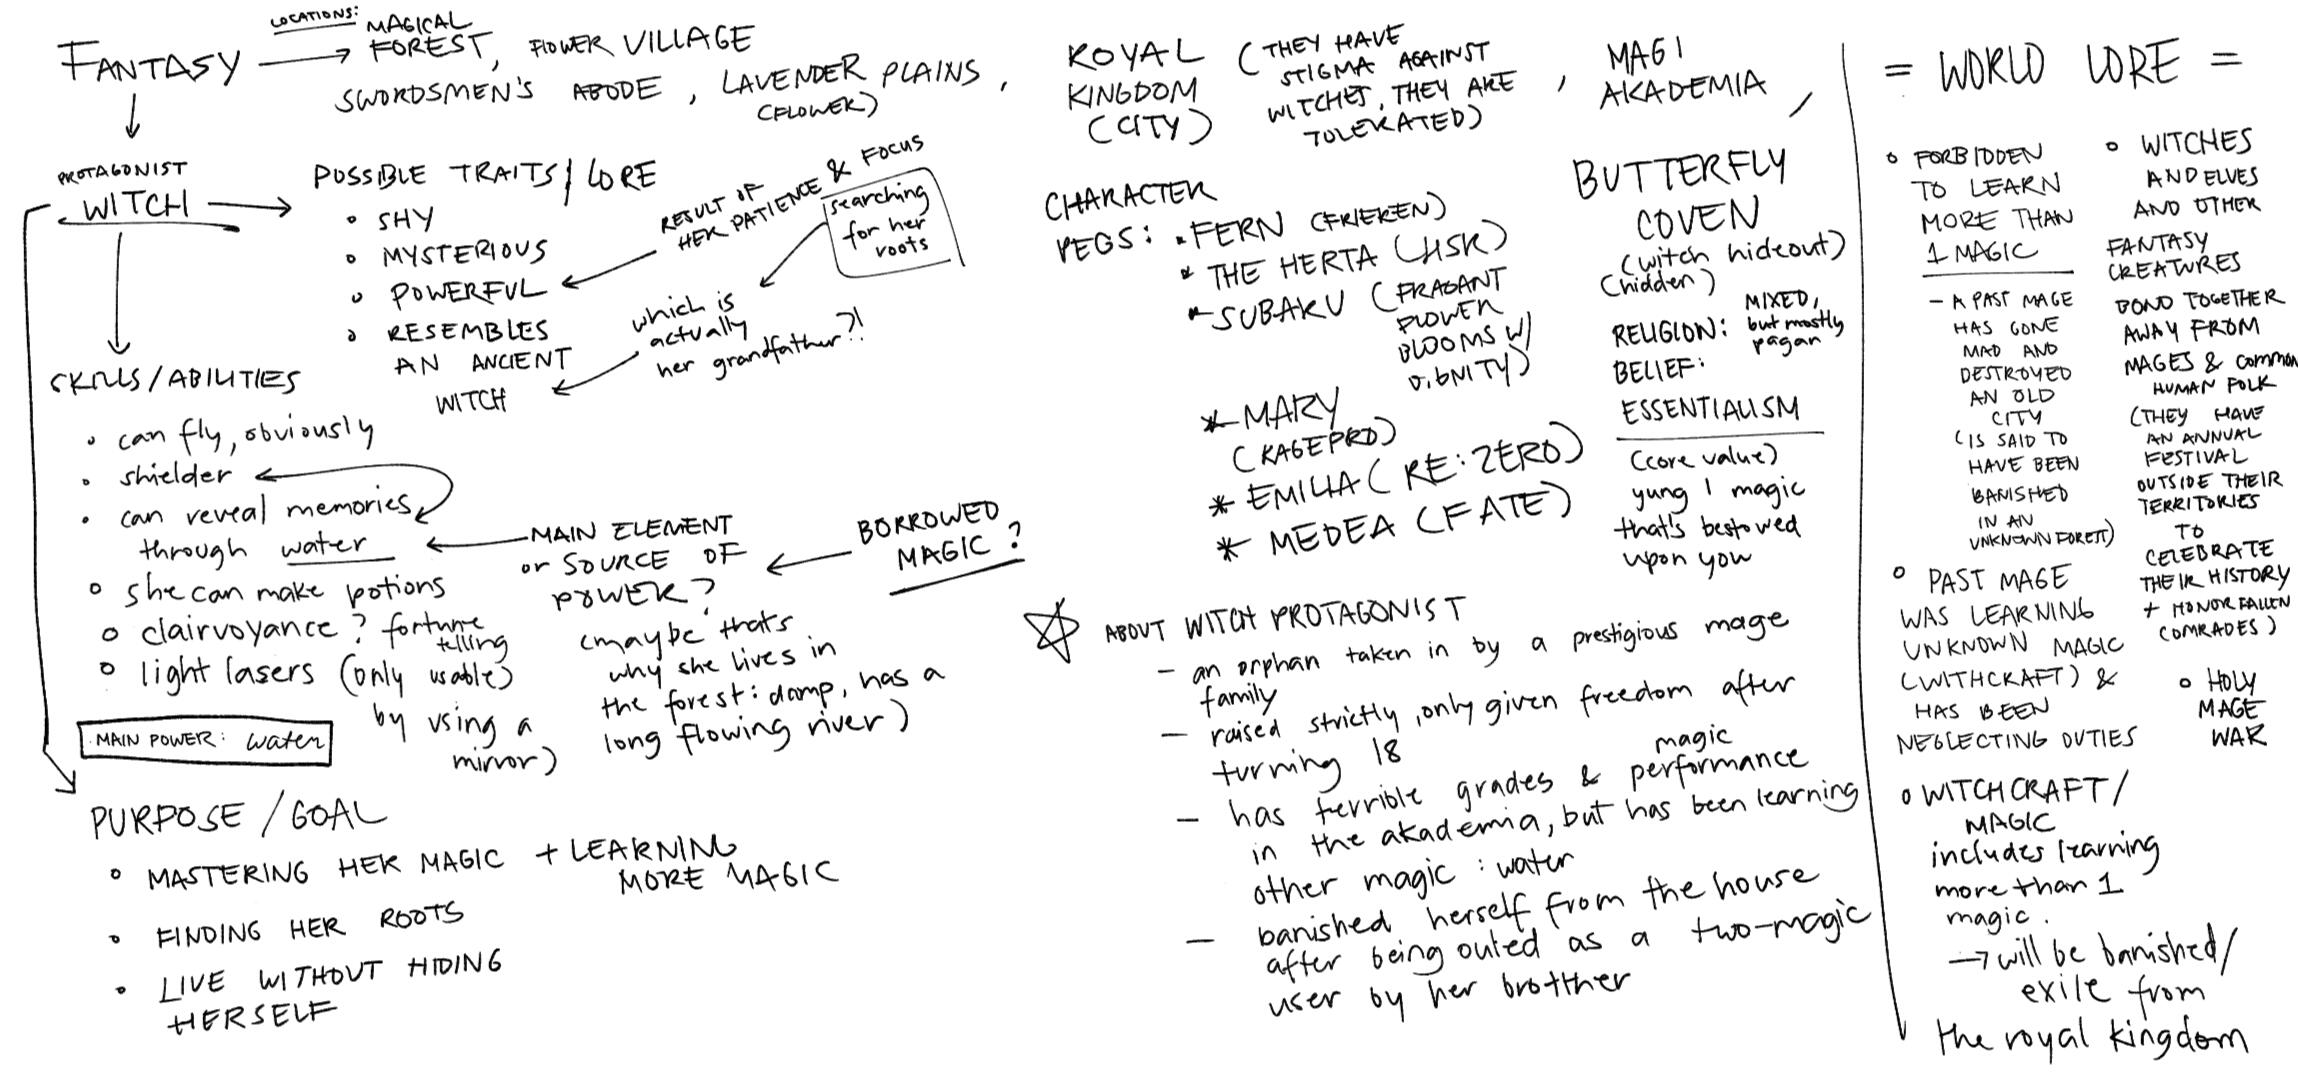 FANTASY
LOCATIONS:
MAGICAL
FOREST, FLOWER VILLAGE
SWORDSMEN'S ABODE, LAVENDER PLAINS,
(FLOWER)
ROYAL
KINGDOM
(CITY)
(THEY HAVE
STIGMA AGAINST
WITCHES, THEY ARE
TOLERATED)
,
MAGI
AKADEMIA,
BUTTERFLY
COVEN
(witch hideout)
(hidden)
RELIGION: MIXED,
but mostly
pagan
BELIEF:
ESSENTIALISM
(core value)
yung 1 magic
that's bestowed
upon you
PROTAGONIST
WITCH
POSSIBLE TRAITS/LORE
• SHY
• MYSTERIOUS
• POWERFUL
• RESEMBLES
AN ANCIENT
WITCH
RESULT OF
HER PATIENCE & FOCUS
searching
for her
roots
which is
actually
her grandfather?!
SKILLS/ABILITIES
• can fly, obviously
• shielder
• can reveal memories
through water
• she can make potions
• clairvoyance? fortune
telling
• light lasers (only usable)
by using a
mirror)
MAIN POWER: water
MAIN ELEMENT
or SOURCE OF
POWER?
(maybe thats
why she lives in
the forest: damp, has a
long flowing river)
BORROWED
MAGIC?
PURPOSE/GOAL
• MASTERING HER MAGIC + LEARNING
MORE MAGIC
• FINDING HER ROOTS
• LIVE WITHOUT HIDING
HERSELF
CHARACTER
PEGS: • FERN (FRIEREN)
* THE HERTA (HSR)
* SUBARU (FRAGANT
FLOWER
BLOOMS W/
DIGNITY)
* MARY
(KAGEPRO)
* EMILIA (RE:ZERO)
* MEDEA (FATE)
☆ ABOUT WITCH PROTAGONIST
- an orphan taken in by a prestigious mage
family
- raised strictly, only given freedom after
turning 18
- has terrible grades & magic performance
in the akademia, but has been learning
other magic: water
- banished herself from the house
after being outed as a two-magic
user by her brotther
= WORLD LORE =
• FORBIDDEN
TO LEARN
MORE THAN
1 MAGIC
- A PAST MAGE
HAS GONE
MAD AND
DESTROYED
AN OLD
CITY
(IS SAID TO
HAVE BEEN
BANISHED
IN AN
UNKNOWN FOREST)
• PAST MAGE
WAS LEARNING
UNKNOWN MAGIC
(WITHCRAFT) &
HAS BEEN
NEGLECTING DUTIES
• WITCHCRAFT/
MAGIC
includes learning
more than 1
magic.
→ will be banished/
exile from
the royal kingdom
• WITCHES
AND ELVES
AND OTHER
FANTASY
CREATURES
BOND TOGETHER
AWAY FROM
MAGES & common
HUMAN FOLK
(THEY HAVE
AN ANNUAL
FESTIVAL
OUTSIDE THEIR
TERRITORIES
TO
CELEBRATE
THEIR HISTORY
+ HONOR FALLEN
COMRADES)
• HOLY
MAGE
WAR